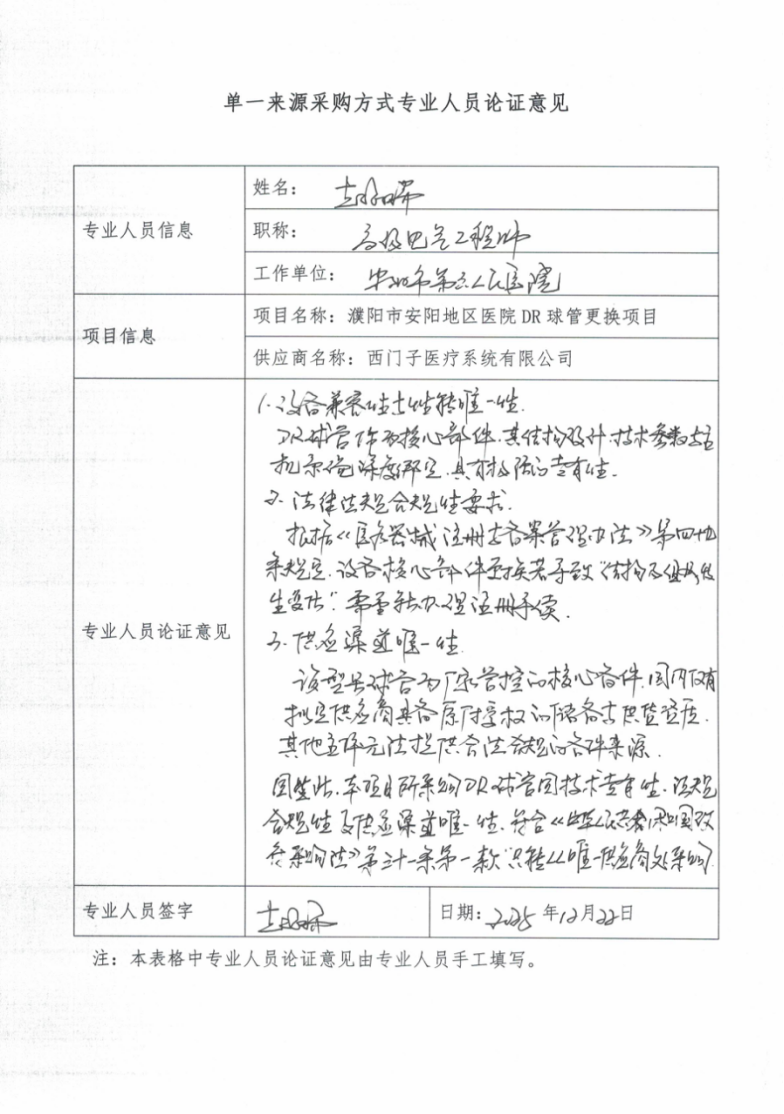 单一来源采购方式专业人员论证意见
专业人员信息
姓名：
职称：高级电气工程师
工作单位：安阳市第六人民医院
项目信息
项目名称：濮阳市安阳地区医院DR球管更换项目
供应商名称：西门子医疗系统有限公司
专业人员论证意见
1.设备兼容性与性能唯一性.
DR球管作为核心部件.其结构设计.技术参数与主
机系统深度绑定.具有极强的专有性.
2.法律法规合规性要求.
根据《医疗器械注册与备案管理办法》第四十九
条规定.设备核心部件更换若导致“结构及组成发
生变化”.需重新办理注册手续.
3.供应渠道唯一性
该型号球管为厂家管控的核心备件.国内仅有
拟定供应商具备原厂授权的储备与供货资质.
其他主体无法提供合法合规的备件来源.
因此.本项目所采购DR球管因技术专有性.法规
合规性及供应渠道唯一性.符合《中华人民共和国政
府采购法》第三十一条第一款“只能从唯一供应商处采购
专业人员签字
日期：2025年12月22日
注：本表格中专业人员论证意见由专业人员手工填写。